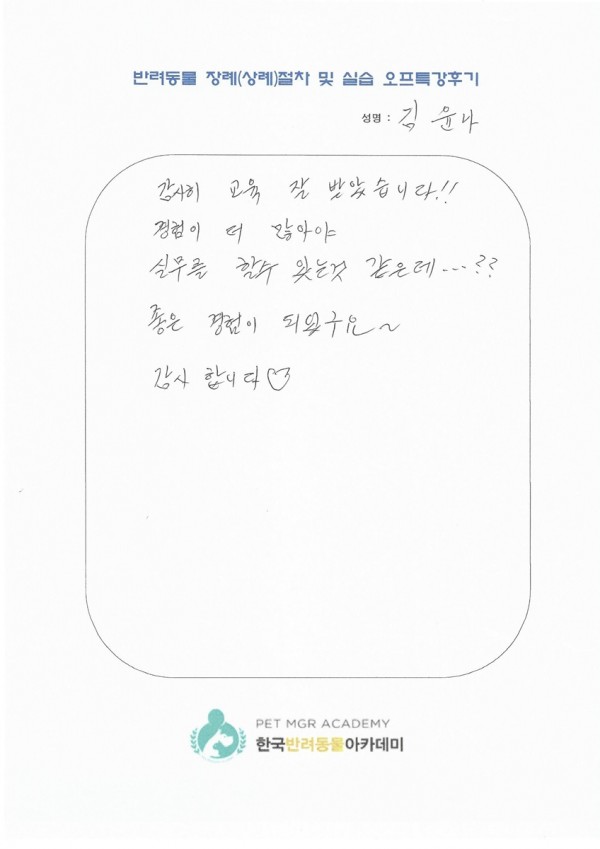 반려동물 장례(상례)절차 및 실습 오프특강후기
성명 : 김윤나
감사히 교육 잘 받았습니다!!
경험이 더 많아야
실무를 할수 있는것 같은데...??
좋은 경험이 되었구요~
감사 합니다♡
PET MGR ACADEMY
한국반려동물아카데미